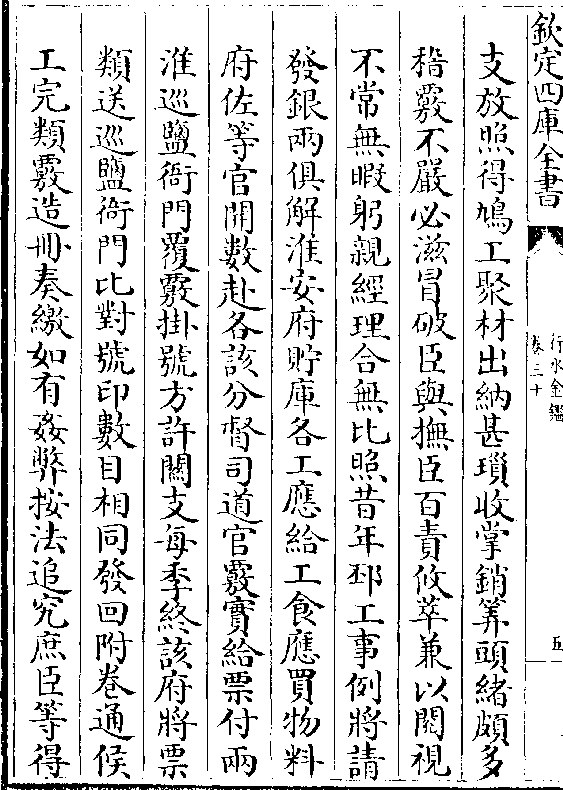 欽定四庫全書
行水金鑑
卷三十
五
支放照得鳩工聚材出納甚瑣收掌銷筭頭緒頗多
稽覈不嚴必滋冒破臣與撫臣百責攸萃兼以閱視
不常無暇躬親經理合無比照昔年邳工事例將請
發銀兩俱解淮安府貯庫各工應給工食應買物料
府佐等官開數赴各該分督司道官覈實給票付兩
淮巡鹽衙門覆覈掛號方許關支每季終該府將票
類送巡鹽衙門比對號印數目相同發回附卷通候
工完類覈造冊奏繳如有姦弊按法追究庶臣等得